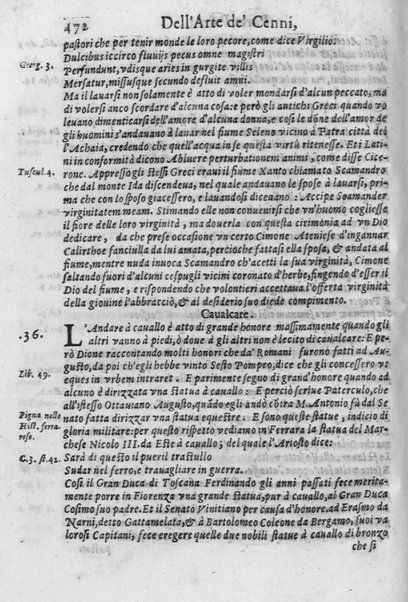 472 Dell'Arte de' Cenni,
pastori che per tener monde le loro pecore, come dice Virgilio:
Georg. 3. Dulcibus iccirco fluuijs pecus omne magistri
Perfundunt, vdisque aries in gurgite villis
Mersatur, missusque secundo defluit amni.
Ma il lauarsi non solamente è atto di voler mondarsi d'alcun peccato, ma
di volersi anco scordare d'alcuna cosa: e però gli antichi Greci quando vo
leuano dimenticarsi dell'amore d'alcuna donna, e cosi le dōne dell'amor de
gli huomini s'andauano à lauar nel fiume Seleno vicino à Patra città del
l'Achaia, credendo che quell'acqua in se questa virtù ritenesse. Et i Lati
ni in conformità dicono Abluere perturbationem animi, come disse Cice
Tuscul. 4. rone. Appresso gli stessi Greci erau il fiume Xanto chiamato Scamandro
che dal monte Ida discendeua, nel quale andauano le spose à lauarsi, pri
ma che con lo sposo giacessero, e lauandosi diceuano: Accipe Scamander
virginitatem meam. Stimando elle non conuenirsi che vn'huomo cogliesse
il fiore delle loro virginità, ma douerla con questa cirimonia ad vn Dio
dedicare, da che prese occasione vn certo Cimone Ateniese d'ingannar
Calirthoe fanciulla da lui amata, percioche fattasi ella sposa, & andata al
fiume, mentre nuda inuoca Scamandro ch'accetti la sua virginità, Cimone
saltando fuori d'alcuni cespugli vicini coronato d'herbe, fingendo d'esser il
Dio del fiume, e rispondendo che volontieri accettaua l'offerta virginità
della giouine l'abbracciò, & al desiderio suo diede compimento.
Caualcare.
.36. L'Andare à cauallo è atto di grande honore massimamente quando gli
altri vanno à piedi, ò doue à gli altri non è lecito di caualcare. E pe
rò Dione raccontando molti honori che da' Romani furono fatti ad Au=
Lib. 49. gusto, da poi ch'egli hebbe vinto Sesto Pompeo, dice che gli concessero vt
eques in vrbem intraret. E parimente segno di grand'honore quando ad
alcuno è dirizzata vna statua à cauallo: E perciò scriue Patercolo, che
all'istesso Ottauiano Augusto, quādo egli andò cōtra M. Antonio fù dal Se
Pigna nelle Hist. ferraresi. nato fatta dirizzar vna statua equestre. E sono queste statue, indicio di
gloria militare: per questo rispetto vediamo in Ferrara la statua del Mar-
chese Nicolo III. da Este à cauallo; del quale l'Ariosto dice:
C.3. st.42. Sarà di questo il pueril trastullo
Sudar nel ferro, e trauagliare in guerra.
Cosi il Gran Duca di Toscana Ferdinando gli anni passati fece merita-
mente porre in Fiorenza vna grande statua, pur à cauallo, al Gran Duca
Cosimo suo padre. Et il Senato Vinitiano per causa d'honore. ad Erasmo da
Narni, detto Gattamelata, & à Bartolomeo Coleone da Bergamo, suoi va
lorosi Capitani, fece eregere quelle due nobili statue à cauallo di bronzo
che si